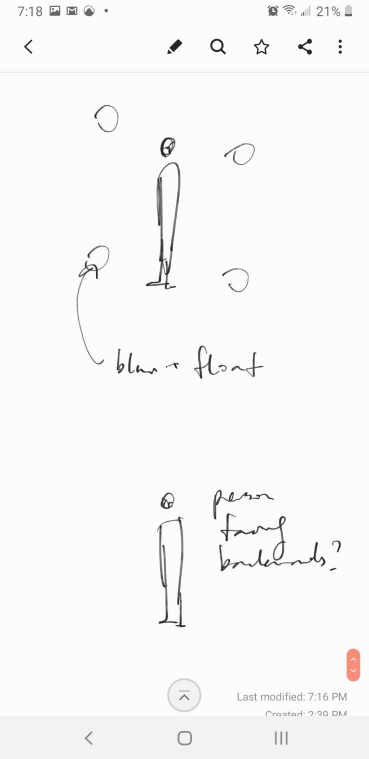 7:18 21%
blur + float
person
facing
backwards?
Last modified: 7:16 PM
Created: 2:39 PM